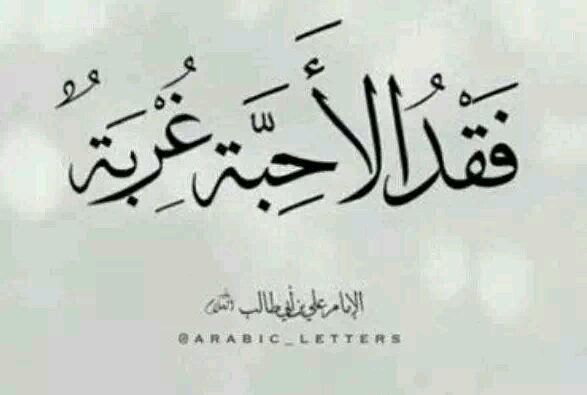 فَقْدُ الأَحِبَّةِ غُرْبَةٌ
الإمام علي بن أبي طالب
@ARABIC_LETTERS